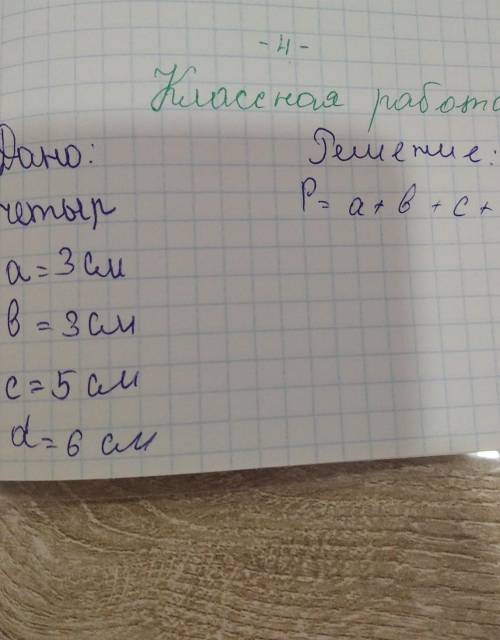 - 4 -
Классная работа
Дано: Решение:
четыр P = a + b + c +
a = 3 см
b = 3 см
c = 5 см
d = 6 см